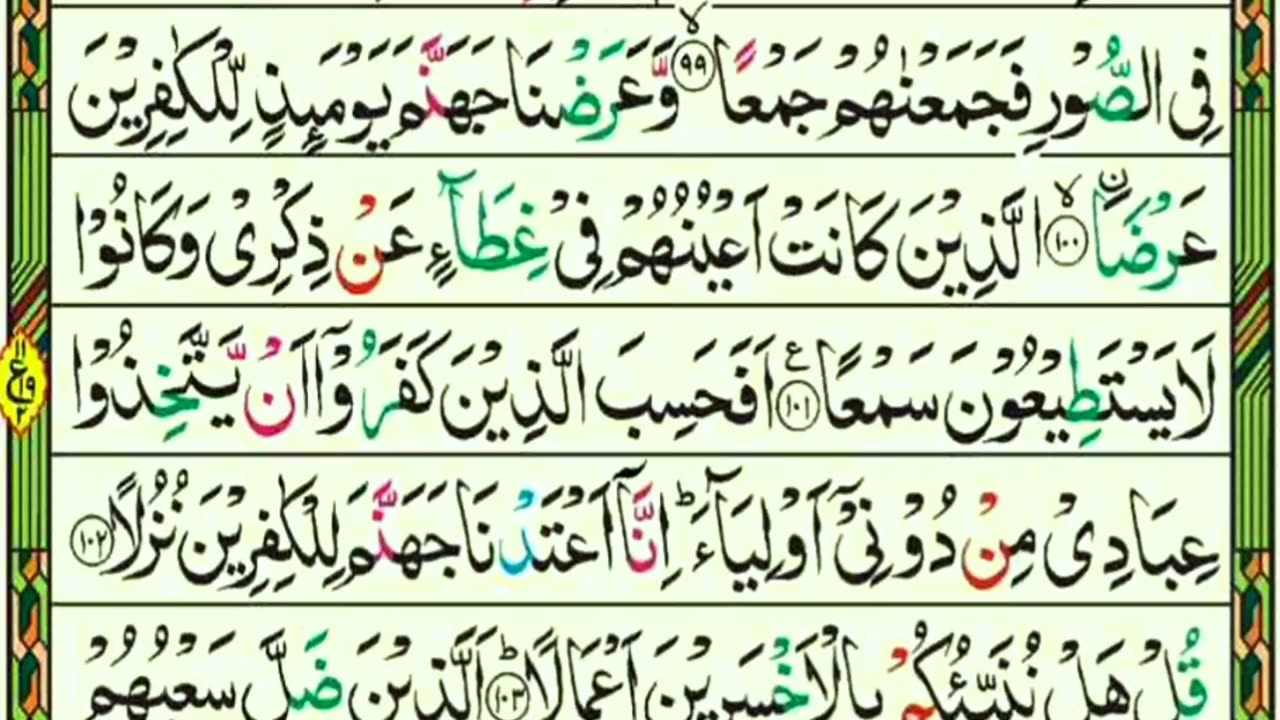 فِى الصُّوْرِ فَجَمَعْنٰهُمْ جَمْعًا ۙ﴿۹۹﴾ وَّعَرَضْنَا جَهَنَّمَ يَوْمَىِٕذٍ لِّلْكٰفِرِيْنَ
عَرْضَا ۙ﴿۱۰۰﴾ ۨالَّذِيْنَ كَانَتْ اَعْيُنُهُمْ فِىْ غِطَآءٍ عَنْ ذِكْرِىْ وَكَانُوْا
لَا يَسْتَطِيْعُوْنَ سَمْعًا ﴿۱۰۱﴾ ع اَفَحَسِبَ الَّذِيْنَ كَفَرُوْۤا اَنْ يَّتَّخِذُوْا
عِبَادِىْ مِنْ دُوْنِىْۤ اَوْلِيَآءَ ؕ اِنَّاۤ اَعْتَدْنَا جَهَنَّمَ لِلْكٰفِرِيْنَ نُزُلًا ﴿۱۰۲﴾
قُلْ هَلْ نُنَبِّئُكُمْ بِالْاَخْسَرِيْنَ اَعْمَالًا ؕ﴿۱۰۳﴾ اَلَّذِيْنَ ضَلَّ سَعْيُهُمْ